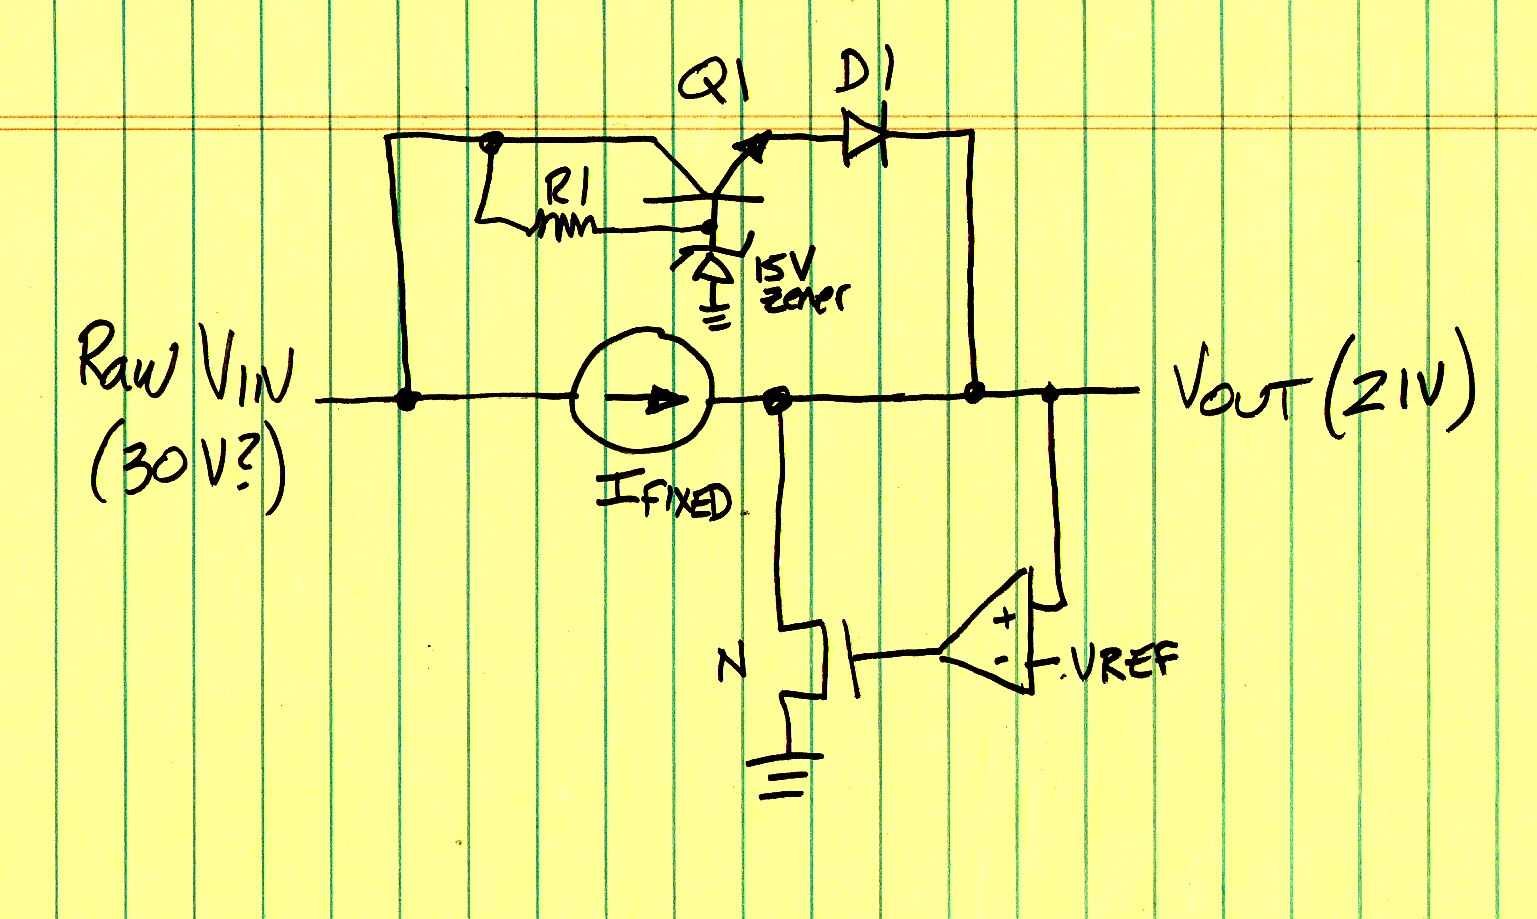 Q1 D1
R1
15V
zener
Raw VIN
(30V?)
VOUT (21V)
IFIXED
+
-
N
VREF